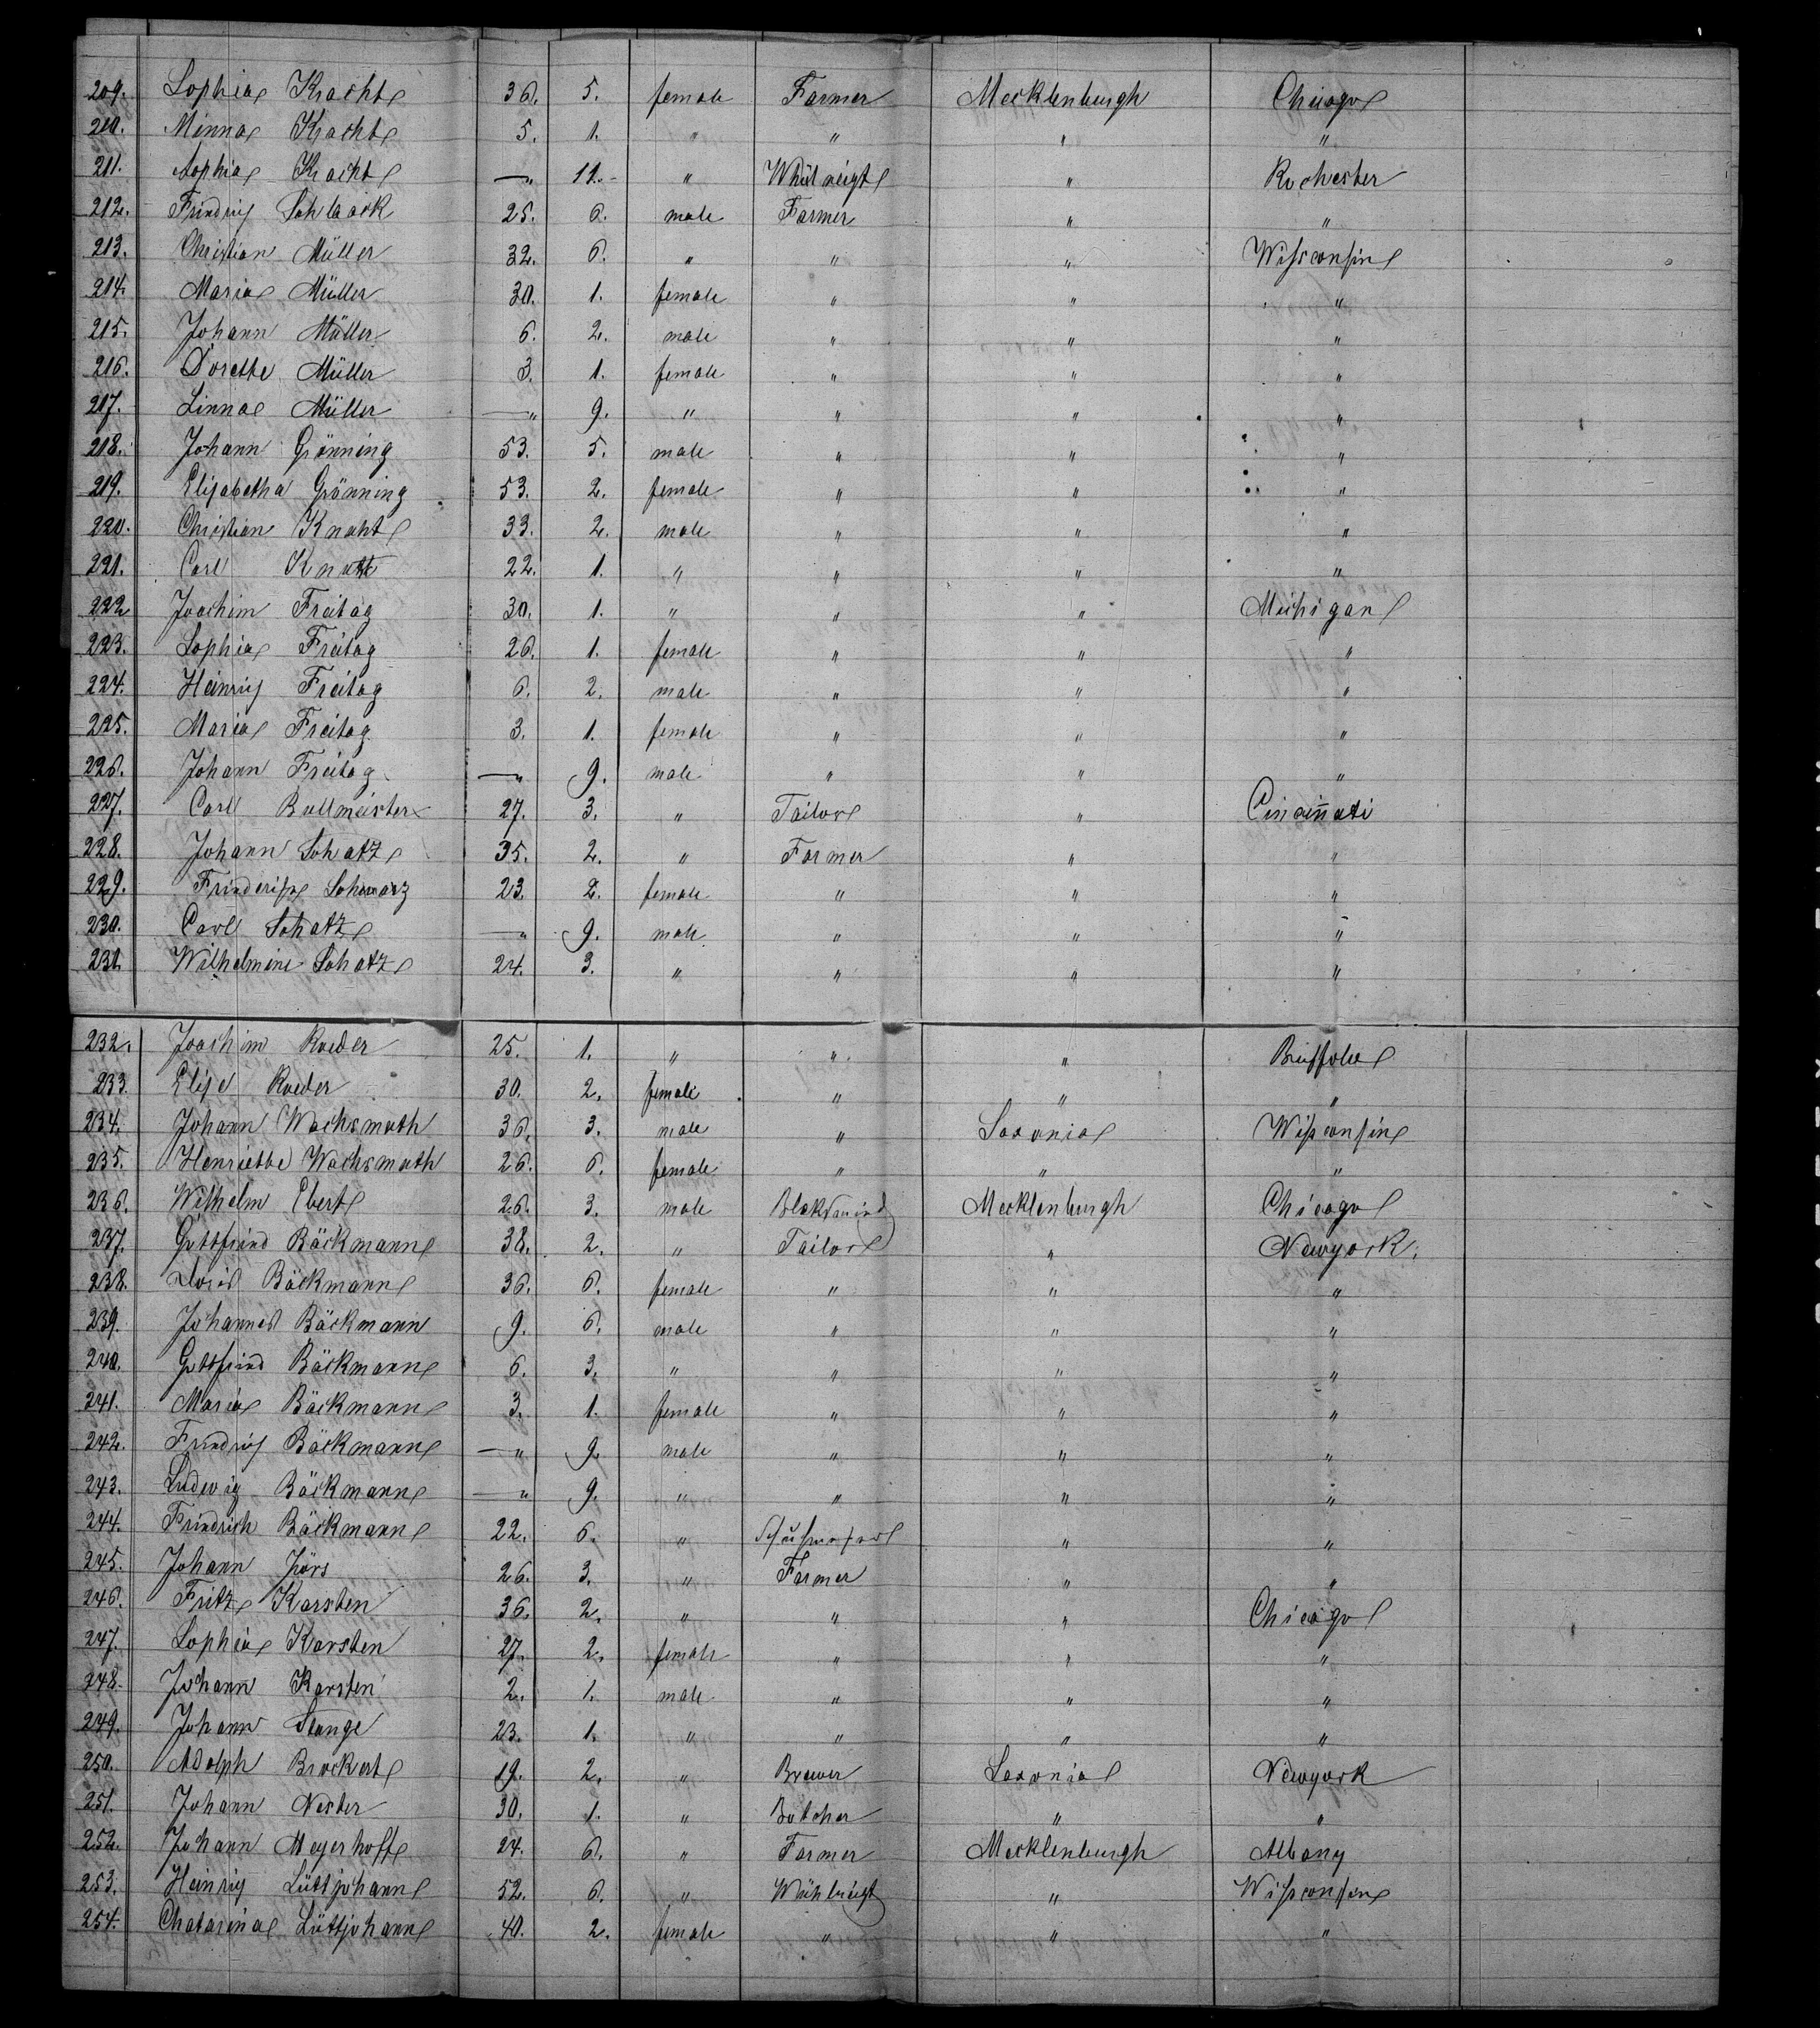 209. Sophia Kracht 36. 5. female Farmer Mecklenburgh Chicago
210. Minna Kracht 5. 1. " " " "
211. Sophia Kracht —" 11. " " Rochester
212. Friedrich Schlack 25. 6. male Farmer " "
213. Christian Müller 32. 6. " " " Wisconsin
214. Maria Müller 30. 1. female " " "
215. Johann Müller 6. 2. male " " "
216. Dorethe Müller 3. 1. female " " "
217. Linna Müller —" 9. " " " "
218. Johann Grönning 53. 5. male " " "
219. Elisabetha Grönning 53. 2. female " " "
220. Christian 33. 2. male " " "
221. Carl 22. 1. " " " "
222 Joachim Freitag 30. 1. " " " Michigan
223. Sophia Freitag 26. 1. female " " "
224. Heinrich Freitag 6. 2. male " " "
225. Maria Freitag 3. 1. female " " "
226. Johann Freitag —" 9. male " " "
227. Carl Bullmeister 27. 3. " Tailor " Cincinnati
228. Johann Schatz 35. 2. " Farmer " "
229. Schwarz 23. 2. female " " "
230. Carl Schatz —" 9. male " " "
231. Wilhelmine Schatz 24. 3. " " " "
232. Joachim Roeder 25. 1. " " "
233. Elise Roeder 30. 2. female " " "
234. Johann Wachsmuth 36. 3. male " Saxonia Wisconsin
235. Henriethe Wachsmuth 26. 6. female " " "
236. Wilhelm Ebert 26. 3. male Mecklenburgh Chicago
237. Gottfried Bäckmann 38. 2. " Tailor " Newyork.
238. Doris Bäckmann 36. 6. female " " "
239. Johannes Bäckmann 9. 6. male " " "
240. Gottfried Bäckmann 6. 3. " " " "
241. Maria Bäckmann 3. 1. female " " "
242. Friedrich Bäckmann —" 9. male " " "
243. Ludwig Bäckmann —" 9. " " " "
244. Friedrich Bäckmann 22. 6. " " "
245. Johann Jörs 26. 3. " Farmer " "
246. Fritz Karsten 36. 2. " " " Chicago
247. Sophia Karsten 27. 2. female " " "
248. Johann Karsten 2. 1. male " " "
249. Johann Stange 23. 1. " " " "
250. Adolph Brockert 19. 2. " Brewer Saxonia Newyork
251. Johann Nester 30. 1. " Botcher " "
252. Johann Meyerhoff 24. 6. " Farmer Mecklenburgh Albany
253. Heinrich Lüttjohann 52. 6. " " Wisconsin
254. Chatarina Lüttjohann 40. 2. female " " "